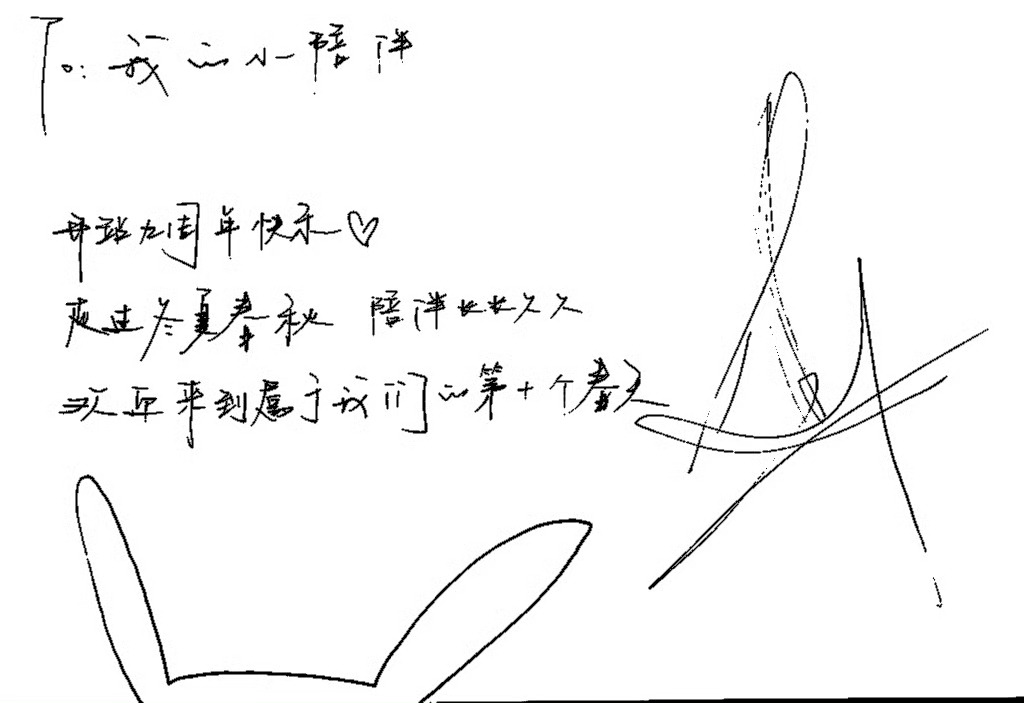 To: 我的小陪伴
开站九周年快乐♡
走过冬夏春秋 陪伴长长久久
欢迎来到属于我们的第十个春天